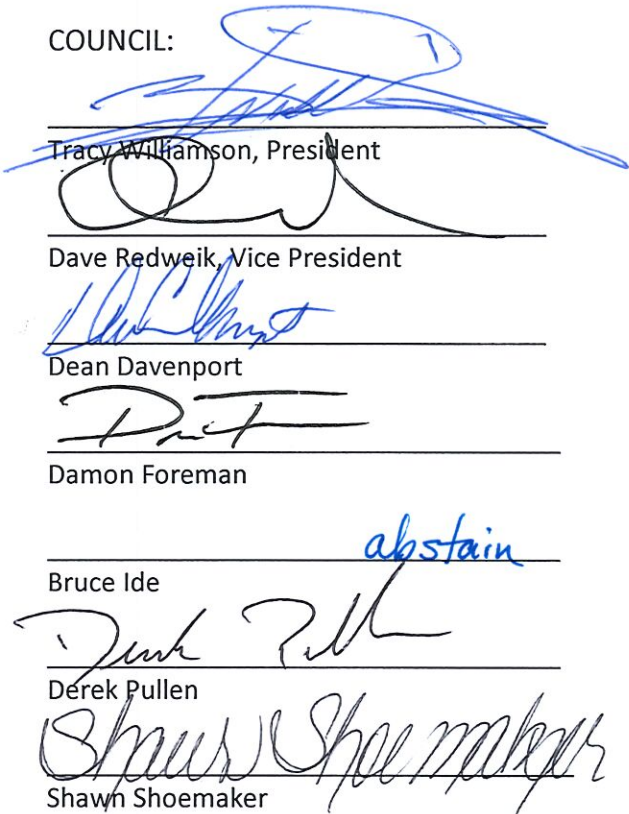 COUNCIL:
Tracy Williamson, President
Dave Redweik, Vice President
Dean Davenport
Damon Foreman
abstain
Bruce Ide
Derek Pullen
Shawn Shoemaker
Shawn Shoemaker